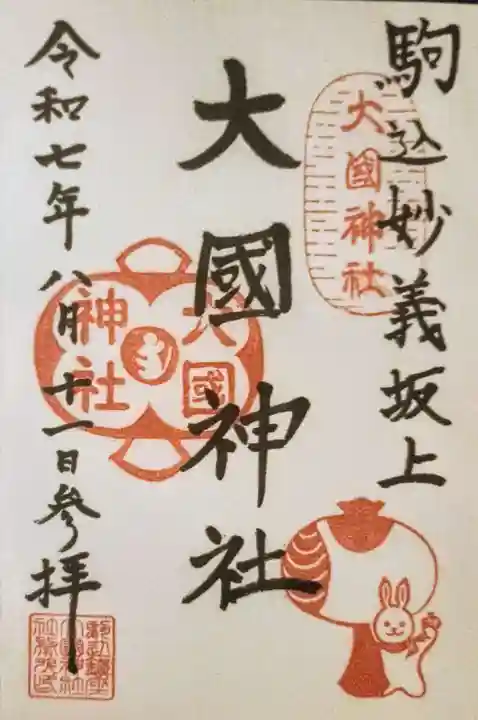 駒込妙義坂上
大國神社
大國神社
大國神社
令和七年八月十一日参拝